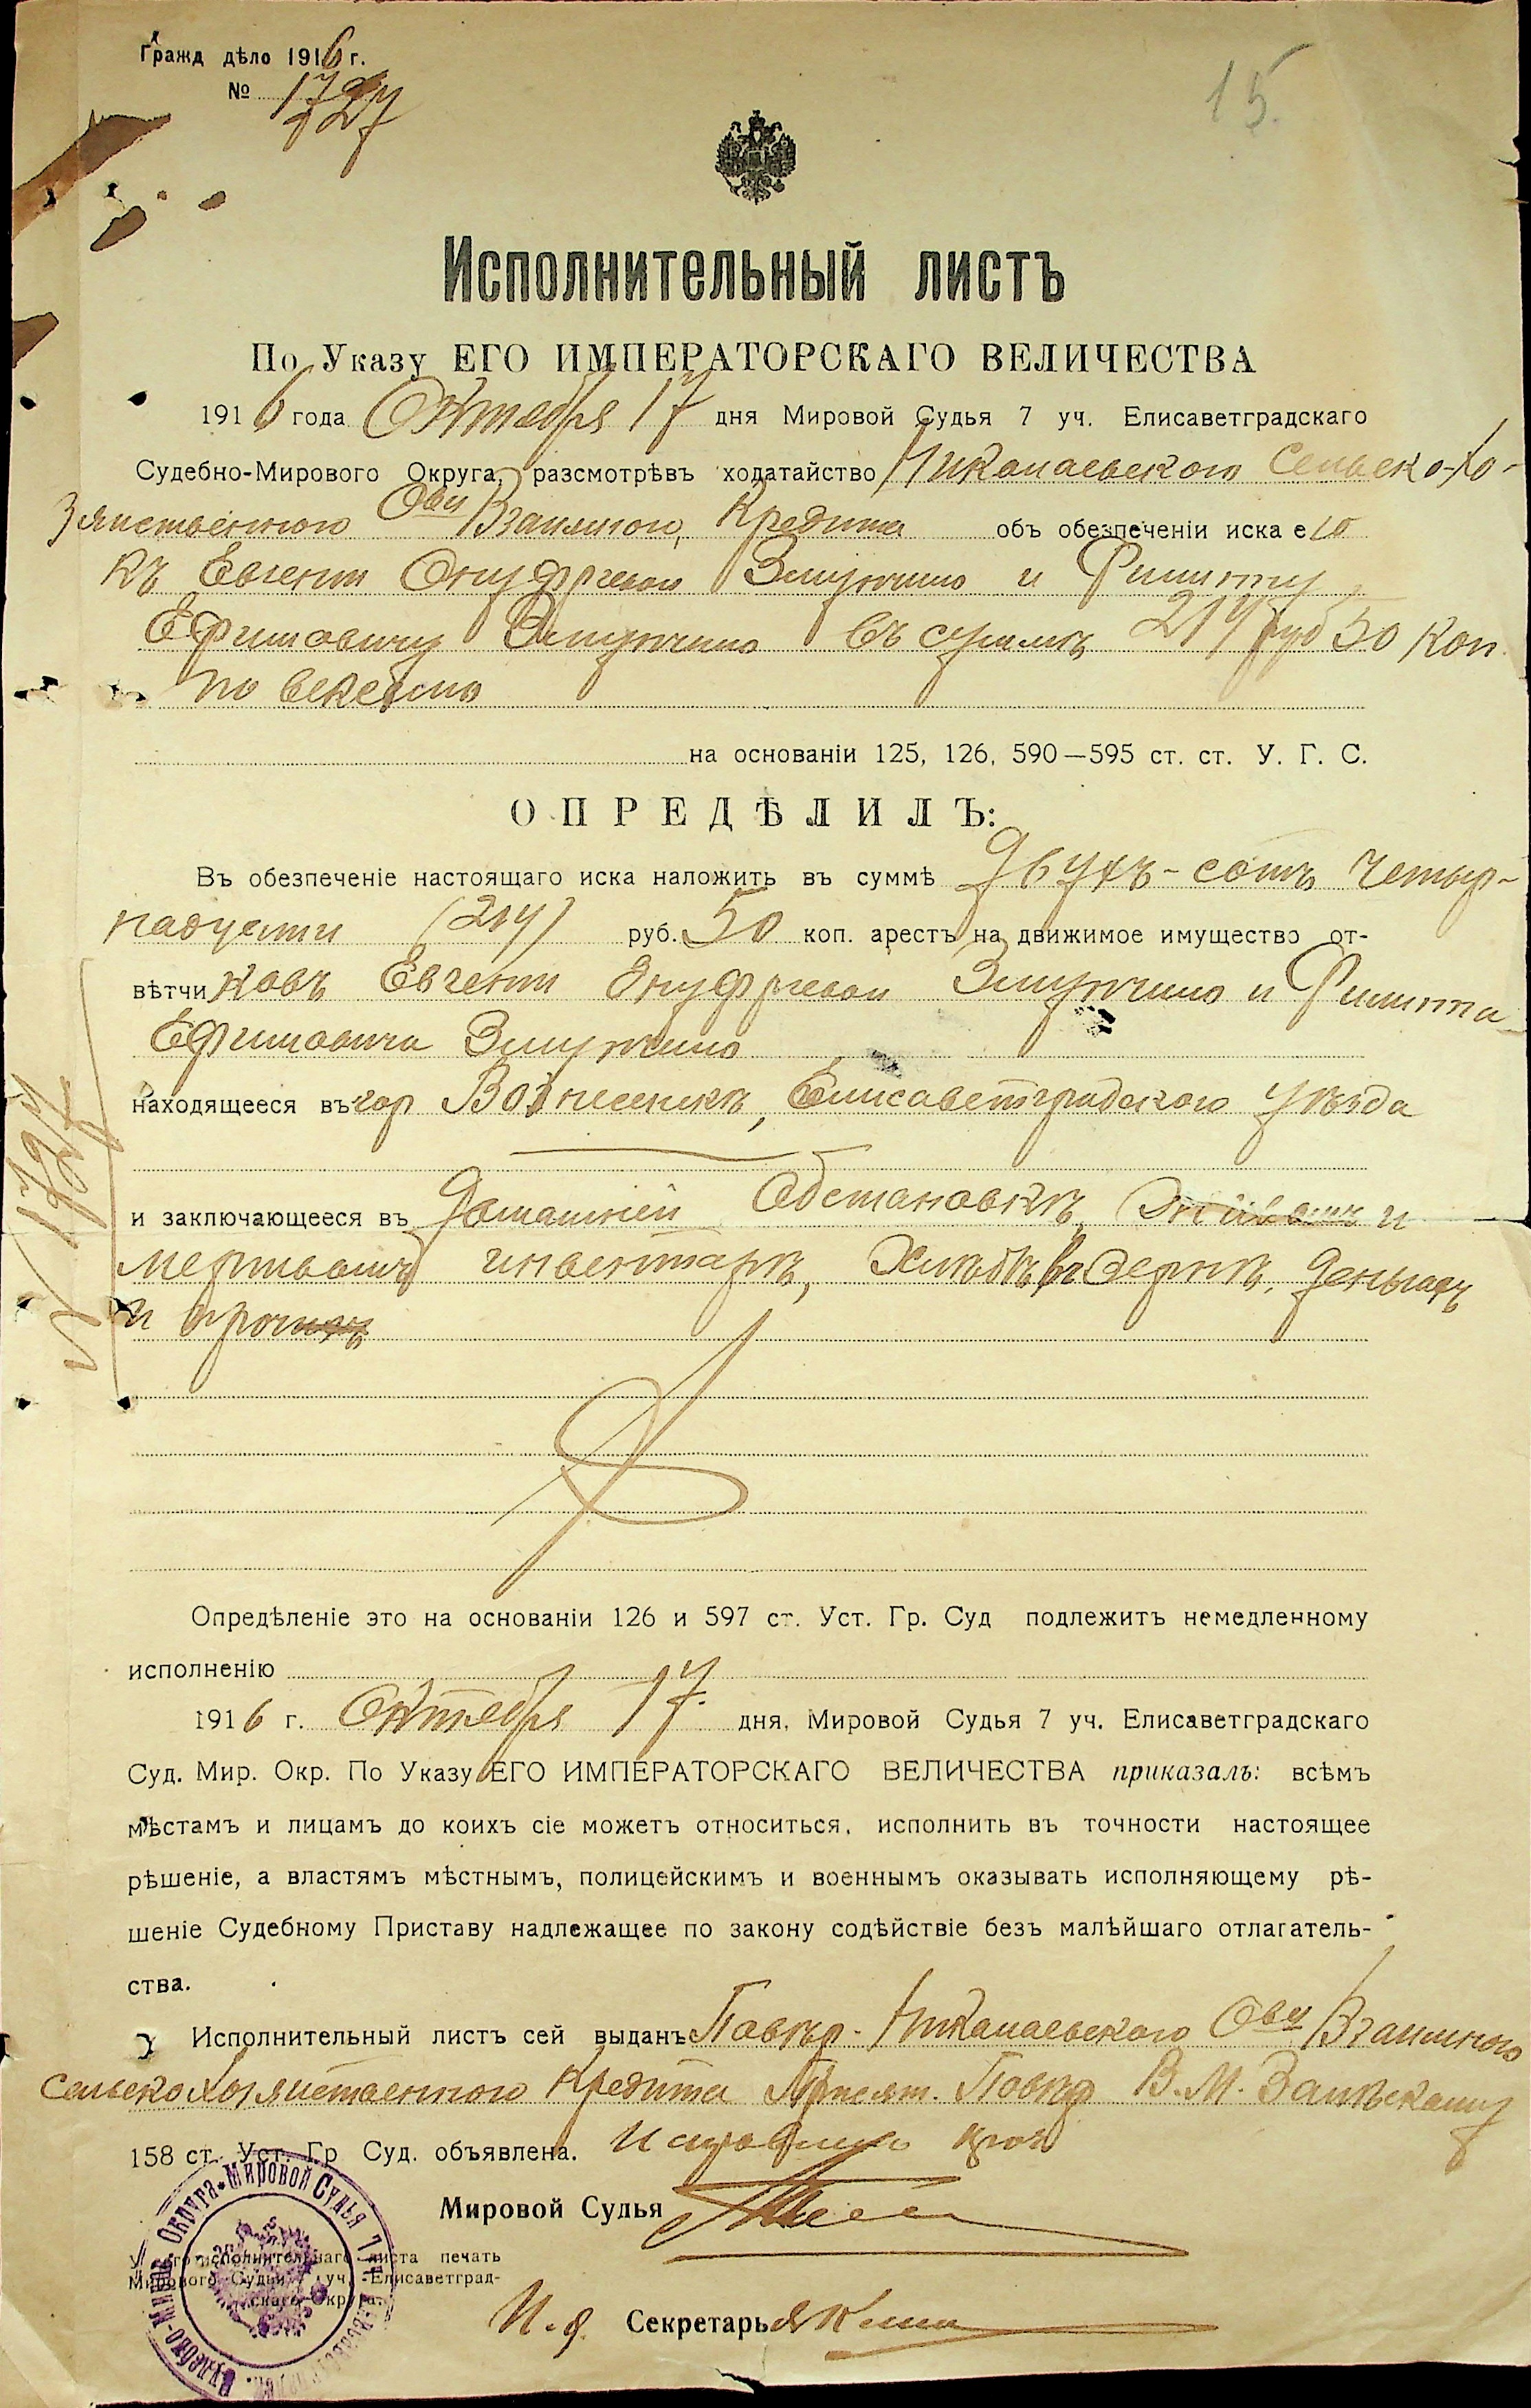 Гражд дѣло 1916 г.
№ 1727
15.
Исполнительный листъ
По Указу ЕГО ИМПЕРАТОРСКАГО ВЕЛИЧЕСТВА
1916 года Октября 17 дня Мировой Судья 7 уч. Елисаветградскаго
Судебно-Мирового Округа, разсмотрѣвъ ходатайство Николаевского Сельско-Хо-
зяйственного Ова Взаимного Кредита объ обезпеченіи иска его
къ Евгеніи Онуфріевой и Филиппу
Ефимовичу въ суммѣ 214 руб 50 коп.
по векселю
на основаніи 125, 126, 590—595 ст. ст. У. Г. С.
ОПРЕДѢЛИЛЪ:
Въ обезпеченіе настоящаго иска наложить въ суммѣ Двухъ-сотъ четыр-
надцати (214) руб. 50 коп. арестъ на движимое имущество от-
вѣтчиковъ Евгеніи Онуфріевой и Филиппа
Ефимовича
находящееся въ гор Вознесенскѣ, Елисаветградского уѣзда
и заключающееся въ Домашней Обстановкѣ, живомъ и
мертвомъ инвентарѣ, Хлѣбѣ въ Зернѣ, деньгахъ
и прочихъ
№ 1727
Опредѣленіе это на основаніи 126 и 597 ст. Уст. Гр. Суд подлежитъ немедленному
исполненію
1916 г. Октября 17 дня, Мировой Судья 7 уч. Елисаветградскаго
Суд. Мир. Окр. По Указу ЕГО ИМПЕРАТОРСКАГО ВЕЛИЧЕСТВА приказалъ: всѣмъ
мѣстамъ и лицамъ до коихъ сіе можетъ относиться, исполнить въ точности настоящее
рѣшеніе, а властямъ мѣстнымъ, полицейскимъ и военнымъ оказывать исполняющему рѣ-
шеніе Судебному Приставу надлежащее по закону содѣйствіе безъ малѣйшаго отлагатель-
ства.
Исполнительный листъ сей выданъ Повѣр. Николаевского Ова Взаимного
Сельскохозяйственного Кредита Присяж. Повѣр В. М. Залѣскому
158 ст. Уст. Гр Суд. объявлена.
Мировой Судья
У сего исполнительнаго листа печать
Мирового Судьи 7 уч. Елисаветград-
скаго Округа.
Судебно-Миров. Округа * Мировой Судья 7 уч.
И. д. Секретарь